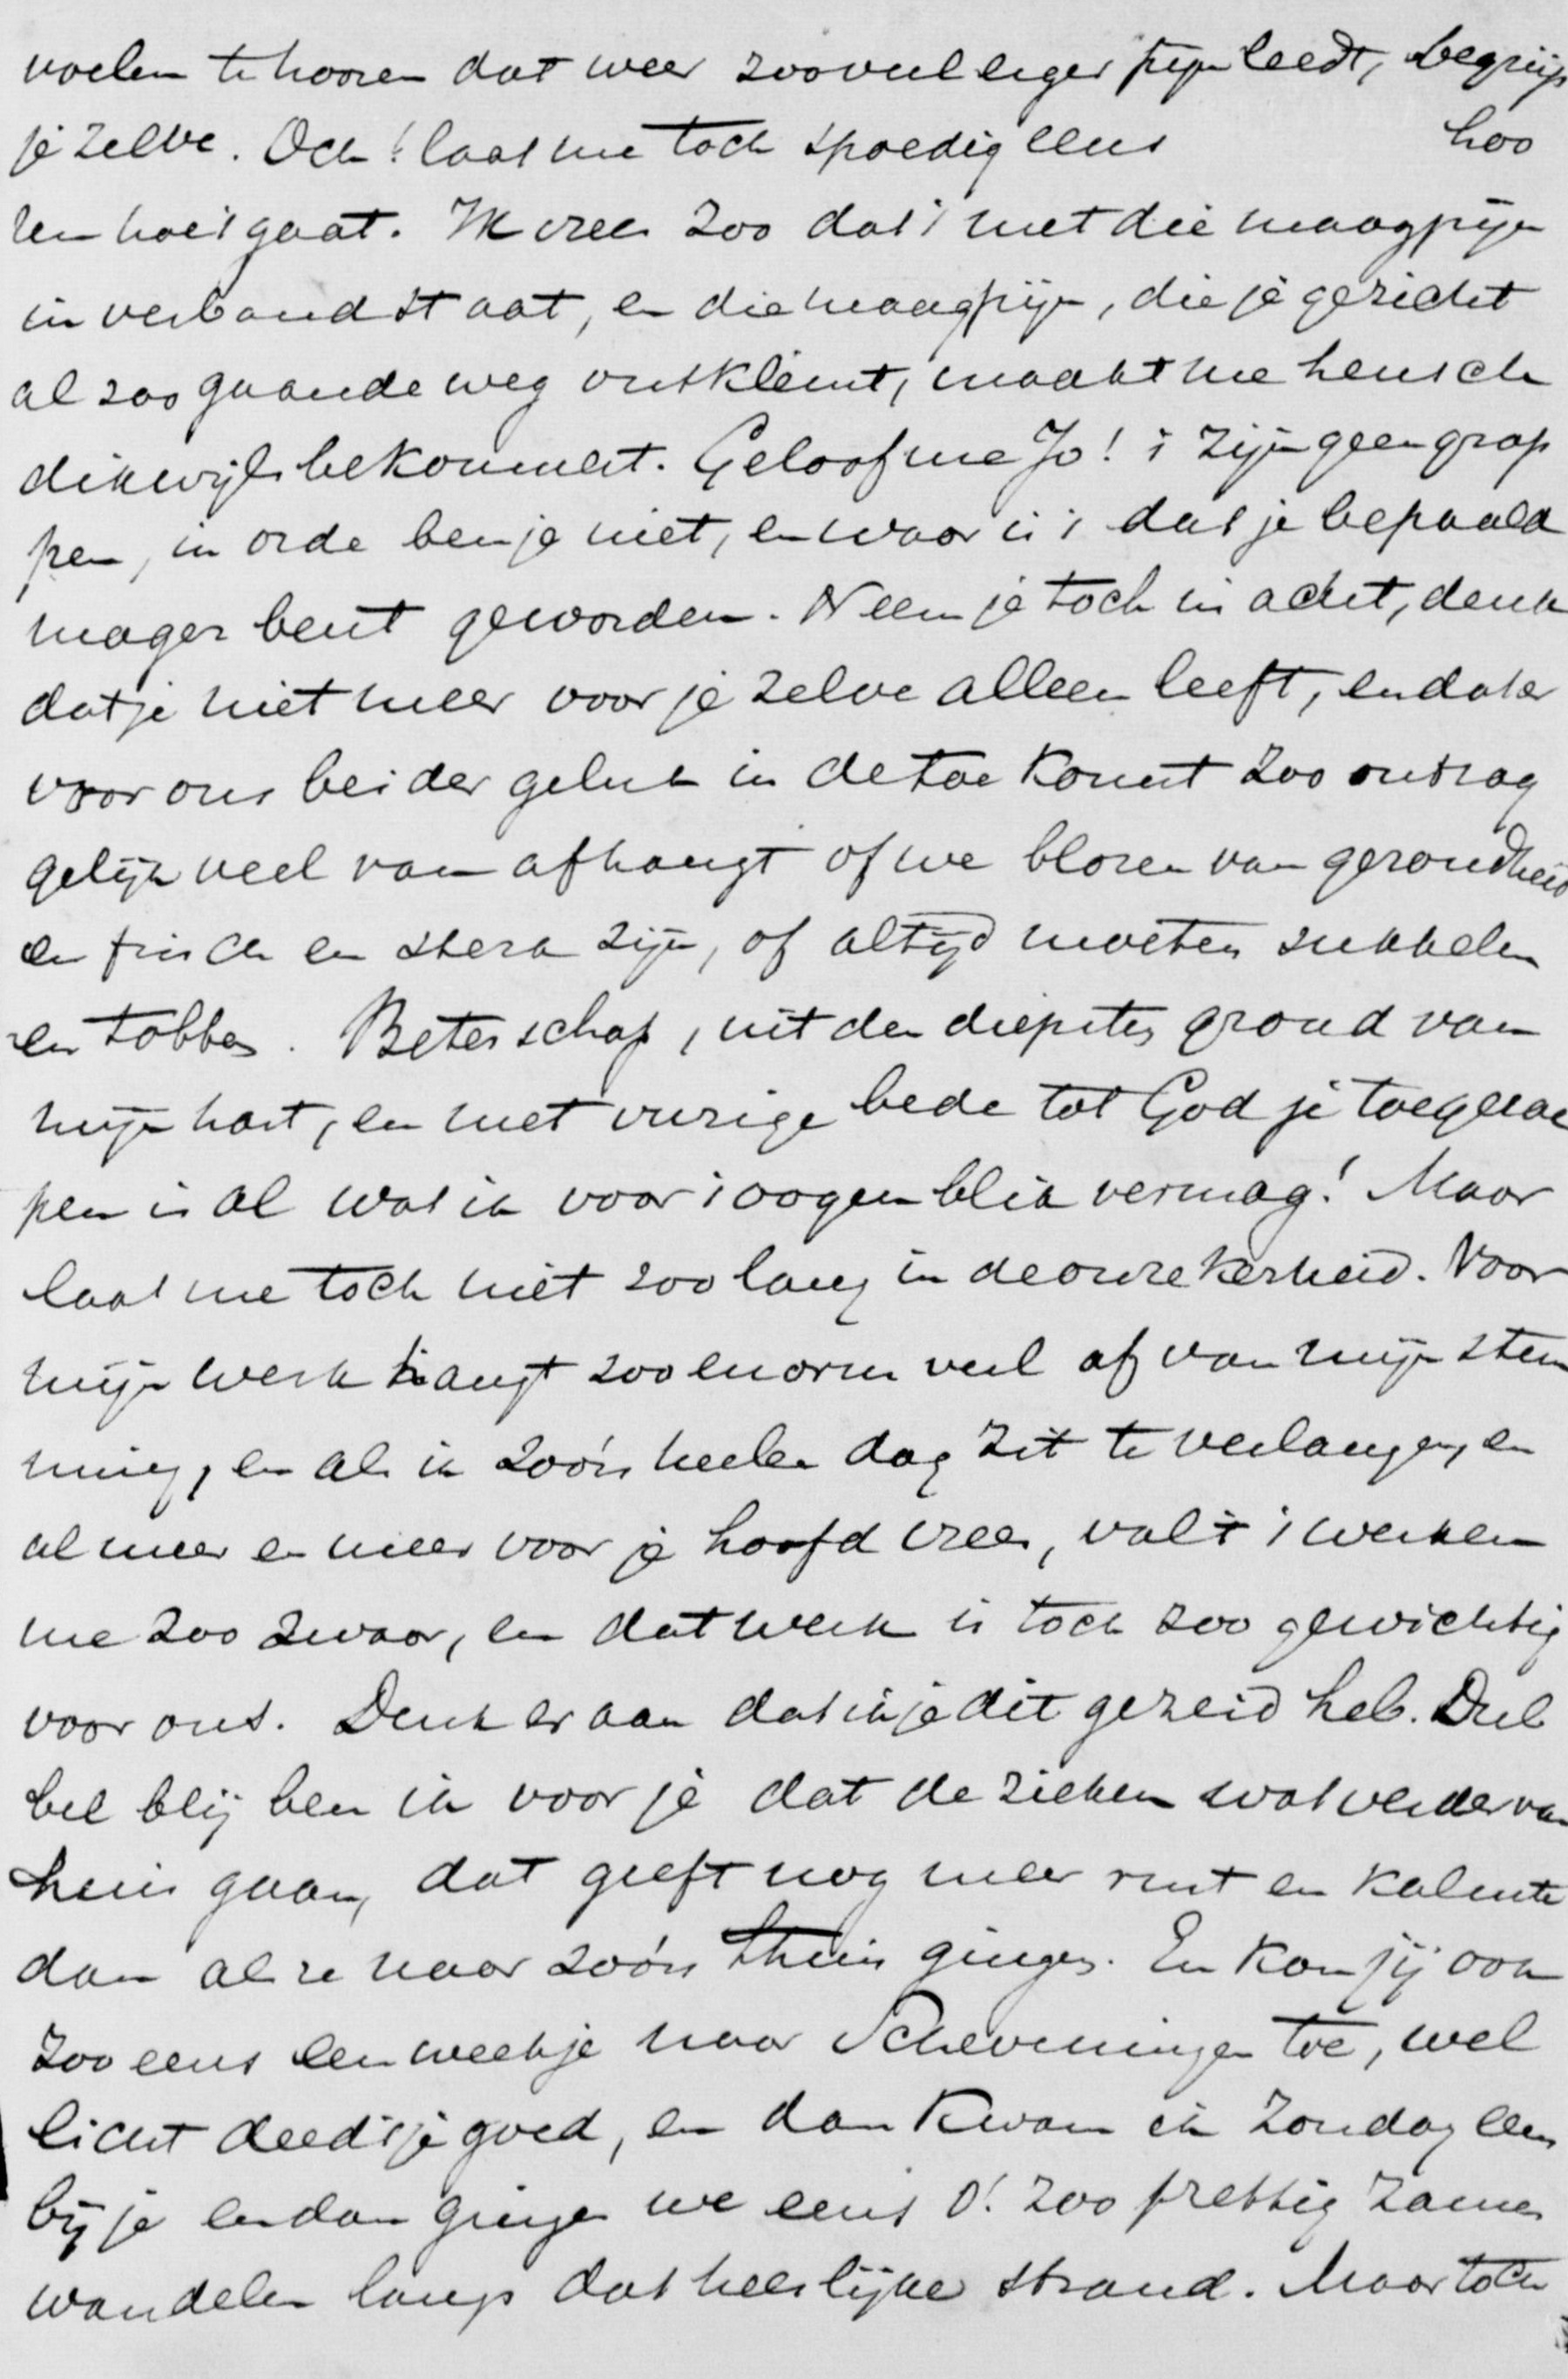 voelen te hooren dat weer zooveel erger pijn leedt, begrijp
je zelve. Och! laat me toch spoedig eens hoo
ren hoe 't gaat. Ik vrees zoo dat 't met die maagpijn
in verband staat, en die maagpijn, die je gezicht
al zoo gaandeweg ontkleint, maakt me heusch
dikwijls bekommert. Geloof me Jo! 't zijn geen grap
pen, in orde ben je niet, en waar is 't dat je bepaald
mager bent geworden. Neem je toch in acht, denk
dat je niet meer voor je zelve alleen leeft, en dat er
voor ons beider geluk in de toekomst zoo ontzag
gelijk veel van afhangt of we blozen van gezondheid
en frisch en sterk zijn, of altijd moeten sukkelen
en tobben. Beterschap, uit den diepsten grond van
mijn hart, en met vurige bede tot God je toegeroe
pen is al wat ik voor 't oogenblik vermag! Maar
laat me toch niet zoo lang in de onzekerheid. Voor
mijn werk hangt zoo enorm veel af van mijn stem
ming, en als ik zoo'n heelen dag zit te verlangen, en
al meer en meer voor je hoofd vrees, valt 't werken
me zoo zwaar, en dat werk is toch zoo gewichtig
voor ons. Denk er aan dat ik je dit gezeid heb. Dub
bel blij ben ik voor je dat de zieken wat verder van
huis gaan, dat geeft nog meer rust en kalmte
dan als ze naar zoo'n thuis gingen. En kon jij ook
zoo eens een weekje naar Scheveningen toe, wel
licht deed 't je goed, en dan kwam ik Zondag eens
bij je en dan gingen we eens O! zoo prettig zamen
wandelen langs dat heerlijke strand. Maar toch